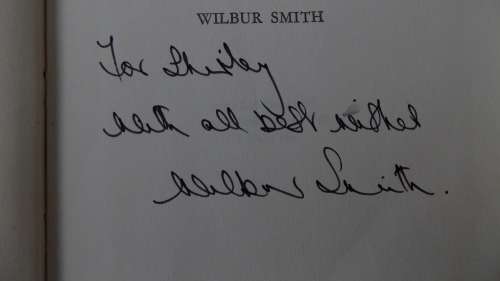 WILBUR SMITH
For Shirley
With all best wishes
Wilbur Smith.